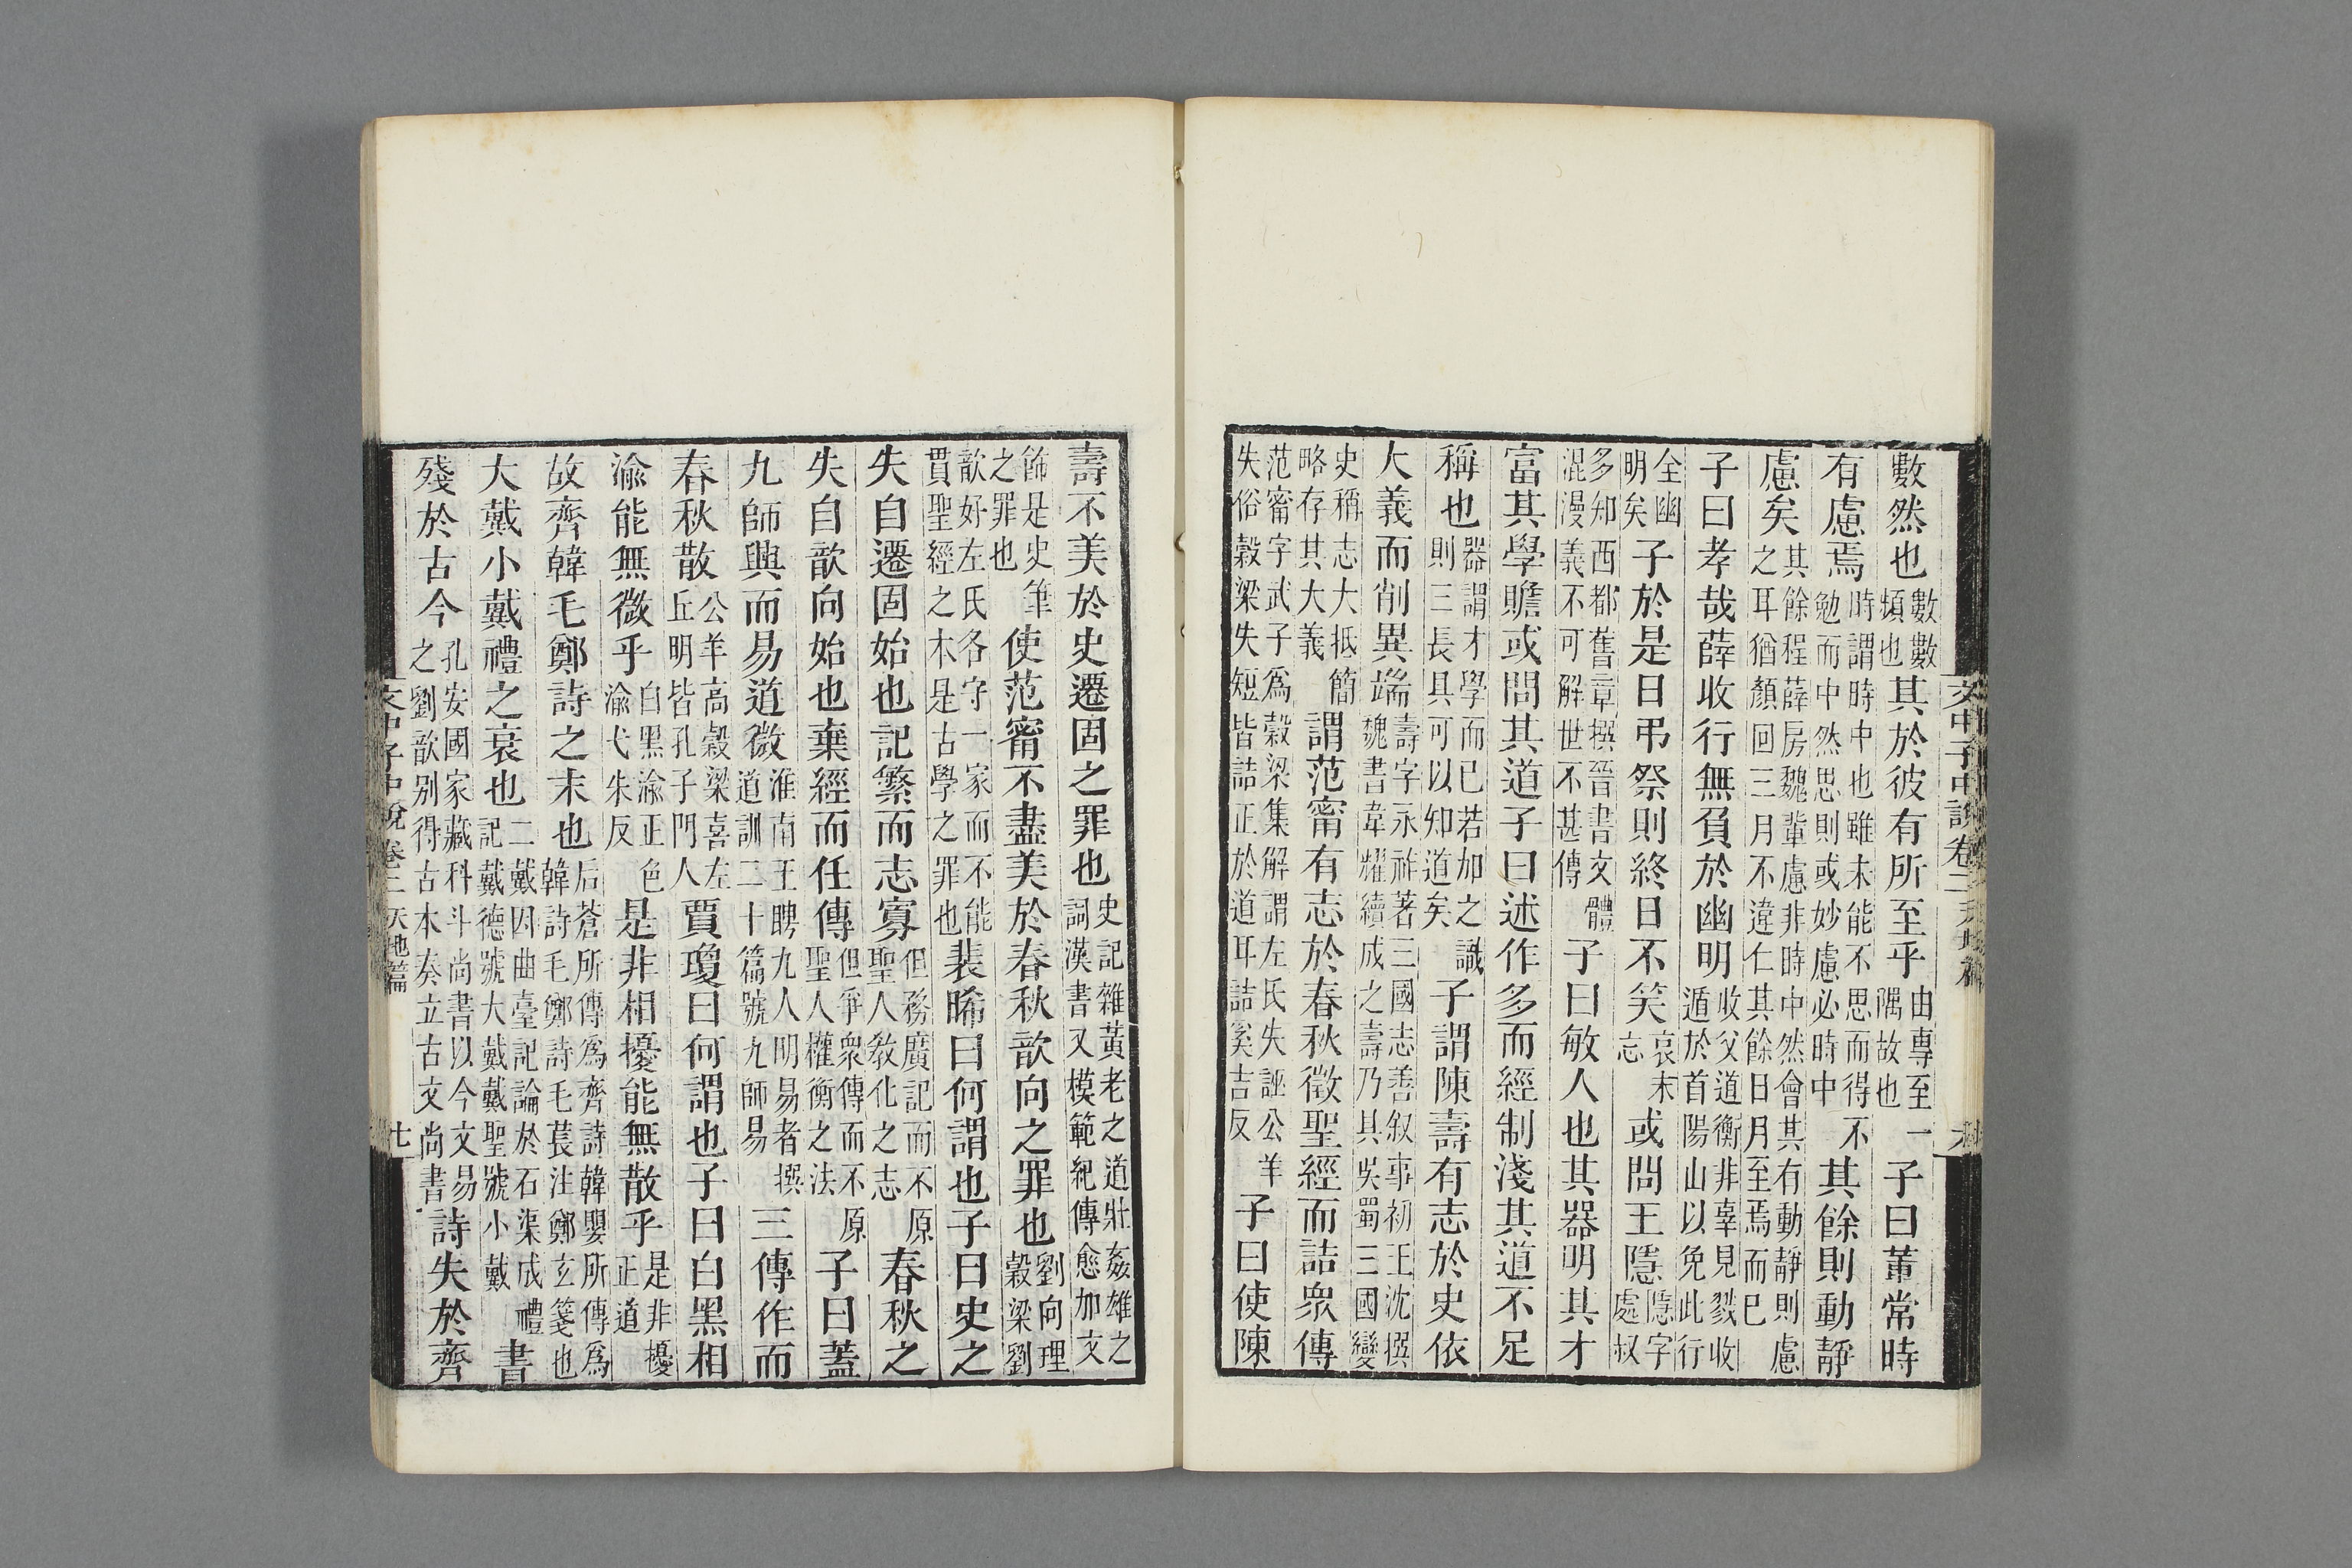 文中子中說卷二 天地篇
數然也數數頻也其於彼有所至乎由專至一隅故也子曰董常時
有慮焉時謂時中也雖未能不思而得不勉而中然思則或妙慮必時中其餘則動靜
慮矣其餘程薛房魏輩慮非時中然會其有動靜則慮之耳猶顏回三月不違仁其餘日月至焉而巳
子曰孝哉薛收行無負於幽明收父道衡非辜見戮收遁於首陽山以免此行
全幽明矣子於是日弔祭則終日不笑哀未忘或問王隱隱字處叔
多知西都舊章撰晉書文體混漫義不可解世不甚傳子曰敏人也其器明其才
富其學贍或問其道子曰述作多而經制淺其道不足
稱也器謂才學而已若加之識則三長具可以知道矣子謂陳壽有志於史依
大義而削異端壽字承祚著三國志善叙事初王沈撰魏書韋耀續成之壽乃其吳蜀三國變
史稱志大抵簡略存其大義謂范甯有志於春秋徵聖經而詰衆傳
范甯字武子為穀梁集解謂左氏失誣公羊失俗穀梁失短皆詰正於道耳詰奚吉反子曰使陳
壽不美於史遷固之罪也史記雜黃老之道壯姦雄之詞漢書又模範紀傳愈加文
飾是史筆之罪也使范甯不盡美於春秋歆向之罪也劉向理穀梁劉
歆好左氏各守一家而不能貫聖經之本是古學之罪也裴晞曰何謂也子曰史之
失自遷固始也記繁而志寡但務廣記而不原聖人敎化之志春秋之
失自歆向始也棄經而任傳但爭衆傳而不原聖人權衡之法子曰蓋
九師興而易道微淮南王聘九人明易者撰道訓二十篇號九師易三傳作而
春秋散公羊高穀梁喜左丘明皆孔子門人賈瓊曰何謂也子曰白黑相
渝能無微乎白黑渝正色渝弋朱反是非相擾能無散乎是非擾正道
故齊韓毛鄭詩之末也后蒼所傳為齊詩韓嬰所傳為韓詩毛鄭詩毛萇注鄭玄箋也
大戴小戴禮之衰也二戴因曲臺記論於石渠成禮記戴德號大戴戴聖號小戴書
殘於古今孔安國家藏科斗尚書以今文易之劉歆别得古本奏立古文尚書詩失於齊
文中子中說卷二 天地篇 七